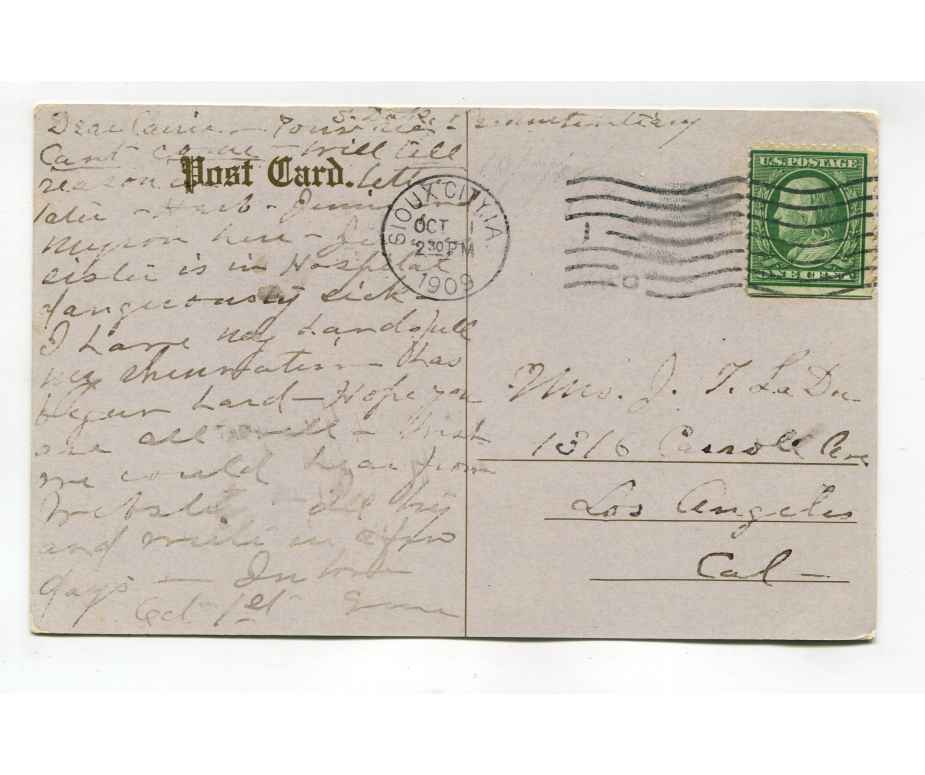 S. Dak. Penitentiary
Dear Carrie -
Can't come - Will tell
reason in letter
Post Card.
later -
Myron here -
sister is in Hospital
dangerously sick -
I have my hands full
my rheumatism - has
begun hard - Hope you
are all well - Wish
we could hear from
and write in a few
days - In love
Oct 1st
SIOUX CITY, IA.
OCT 1
2 30 PM
1909
U.S. POSTAGE
ONE CENT
Mrs. J. T. LaDu
1316 Carroll Ave
Los Angeles
Cal -